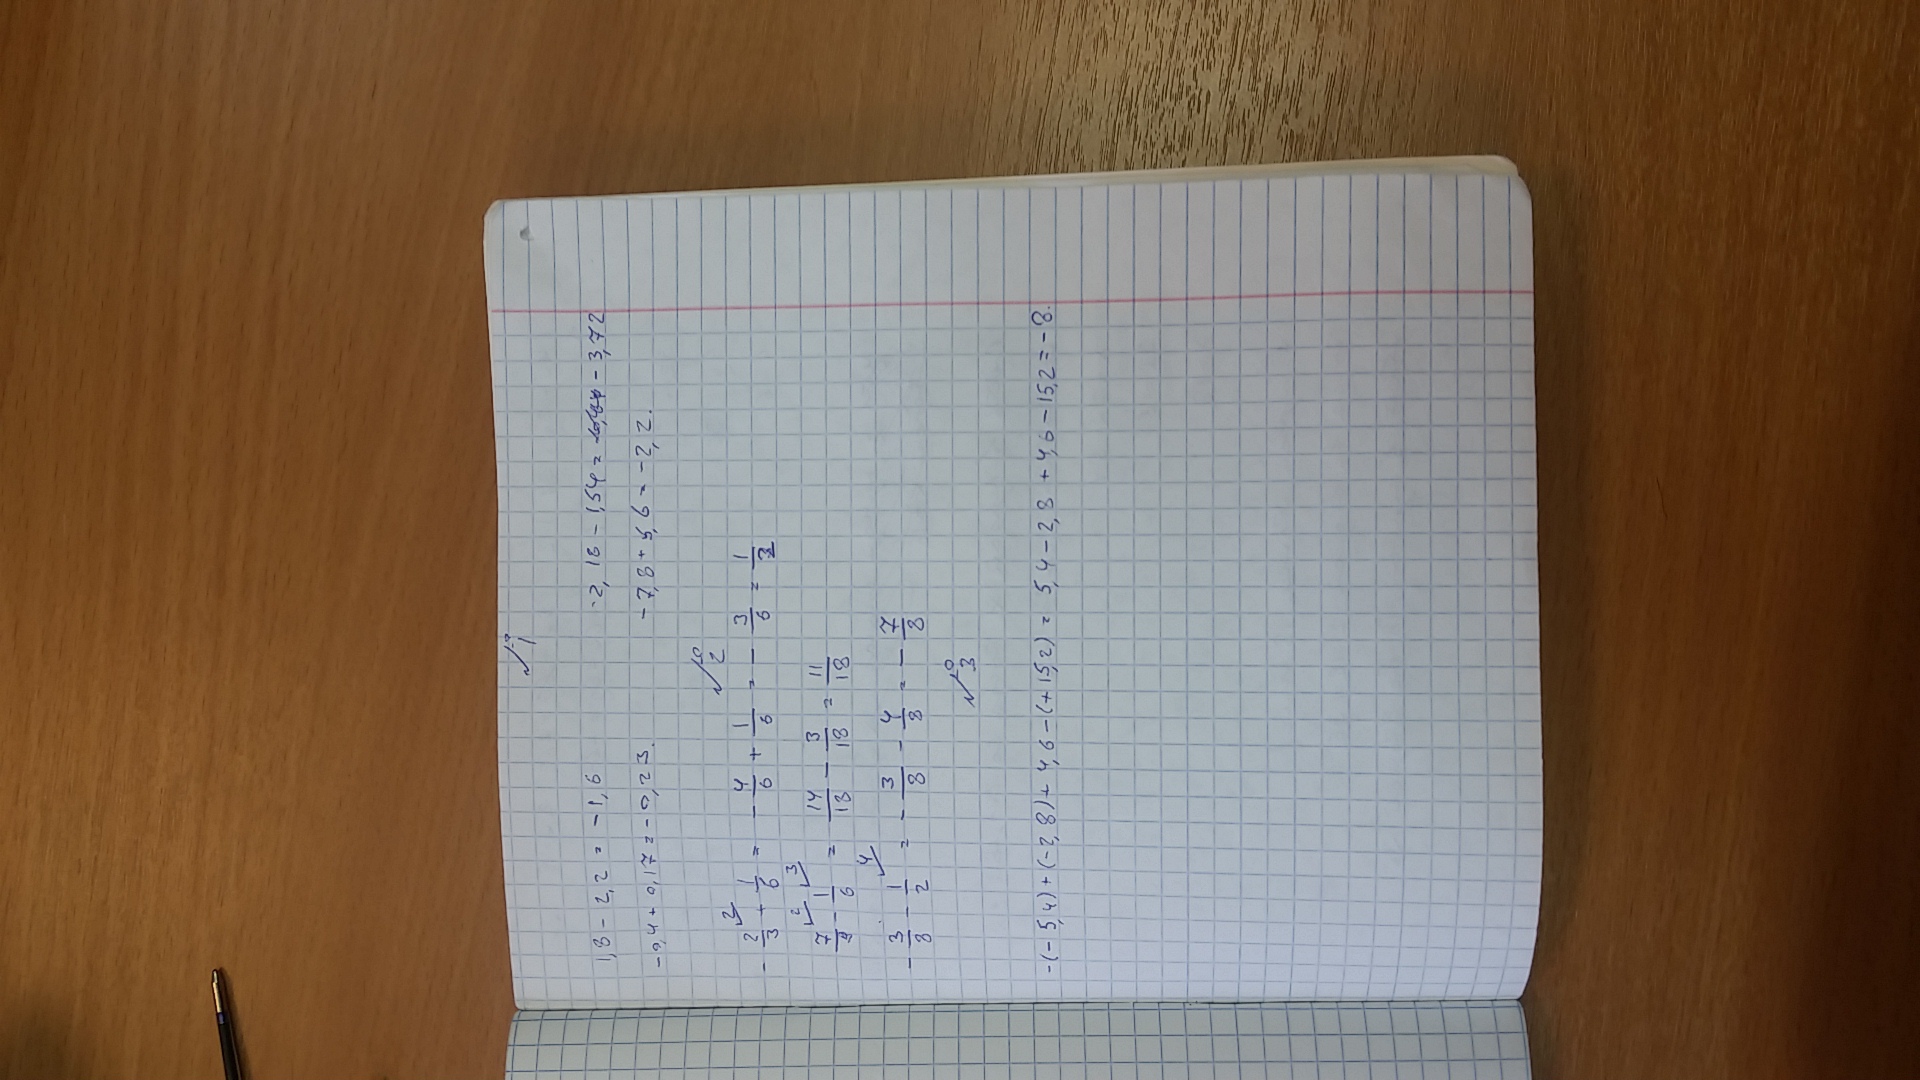 №1
1,8 - 2,2 = -1,6    -2,18 - 1,54 = - 3,72
-0,4 + 0,17 = -0,23.    -7,8 + 5,6 = -2,2.
№2
-2/3 + 1/6 = -4/6 + 1/6 = -3/6 = 1/2
7/9 - 1/6 = 14/18 - 3/18 = 11/18
-3/8 - 1/2 = -3/8 - 4/8 = -7/8
№3
-(-5,4)+(-2,8)+4,6-(+15,2) = 5,4-2,8+4,6-15,2=-8.